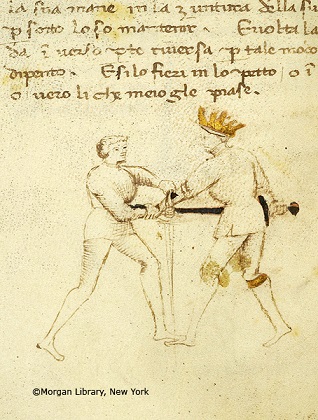 la sua mane in la zuntura della su
p sotto lo so mantenir. E volta la
da i verso d te riversa p tale modo
dipento. E si lo fieri in lo petto o i
o vero li che meio gle piase.
©Morgan Library, New York